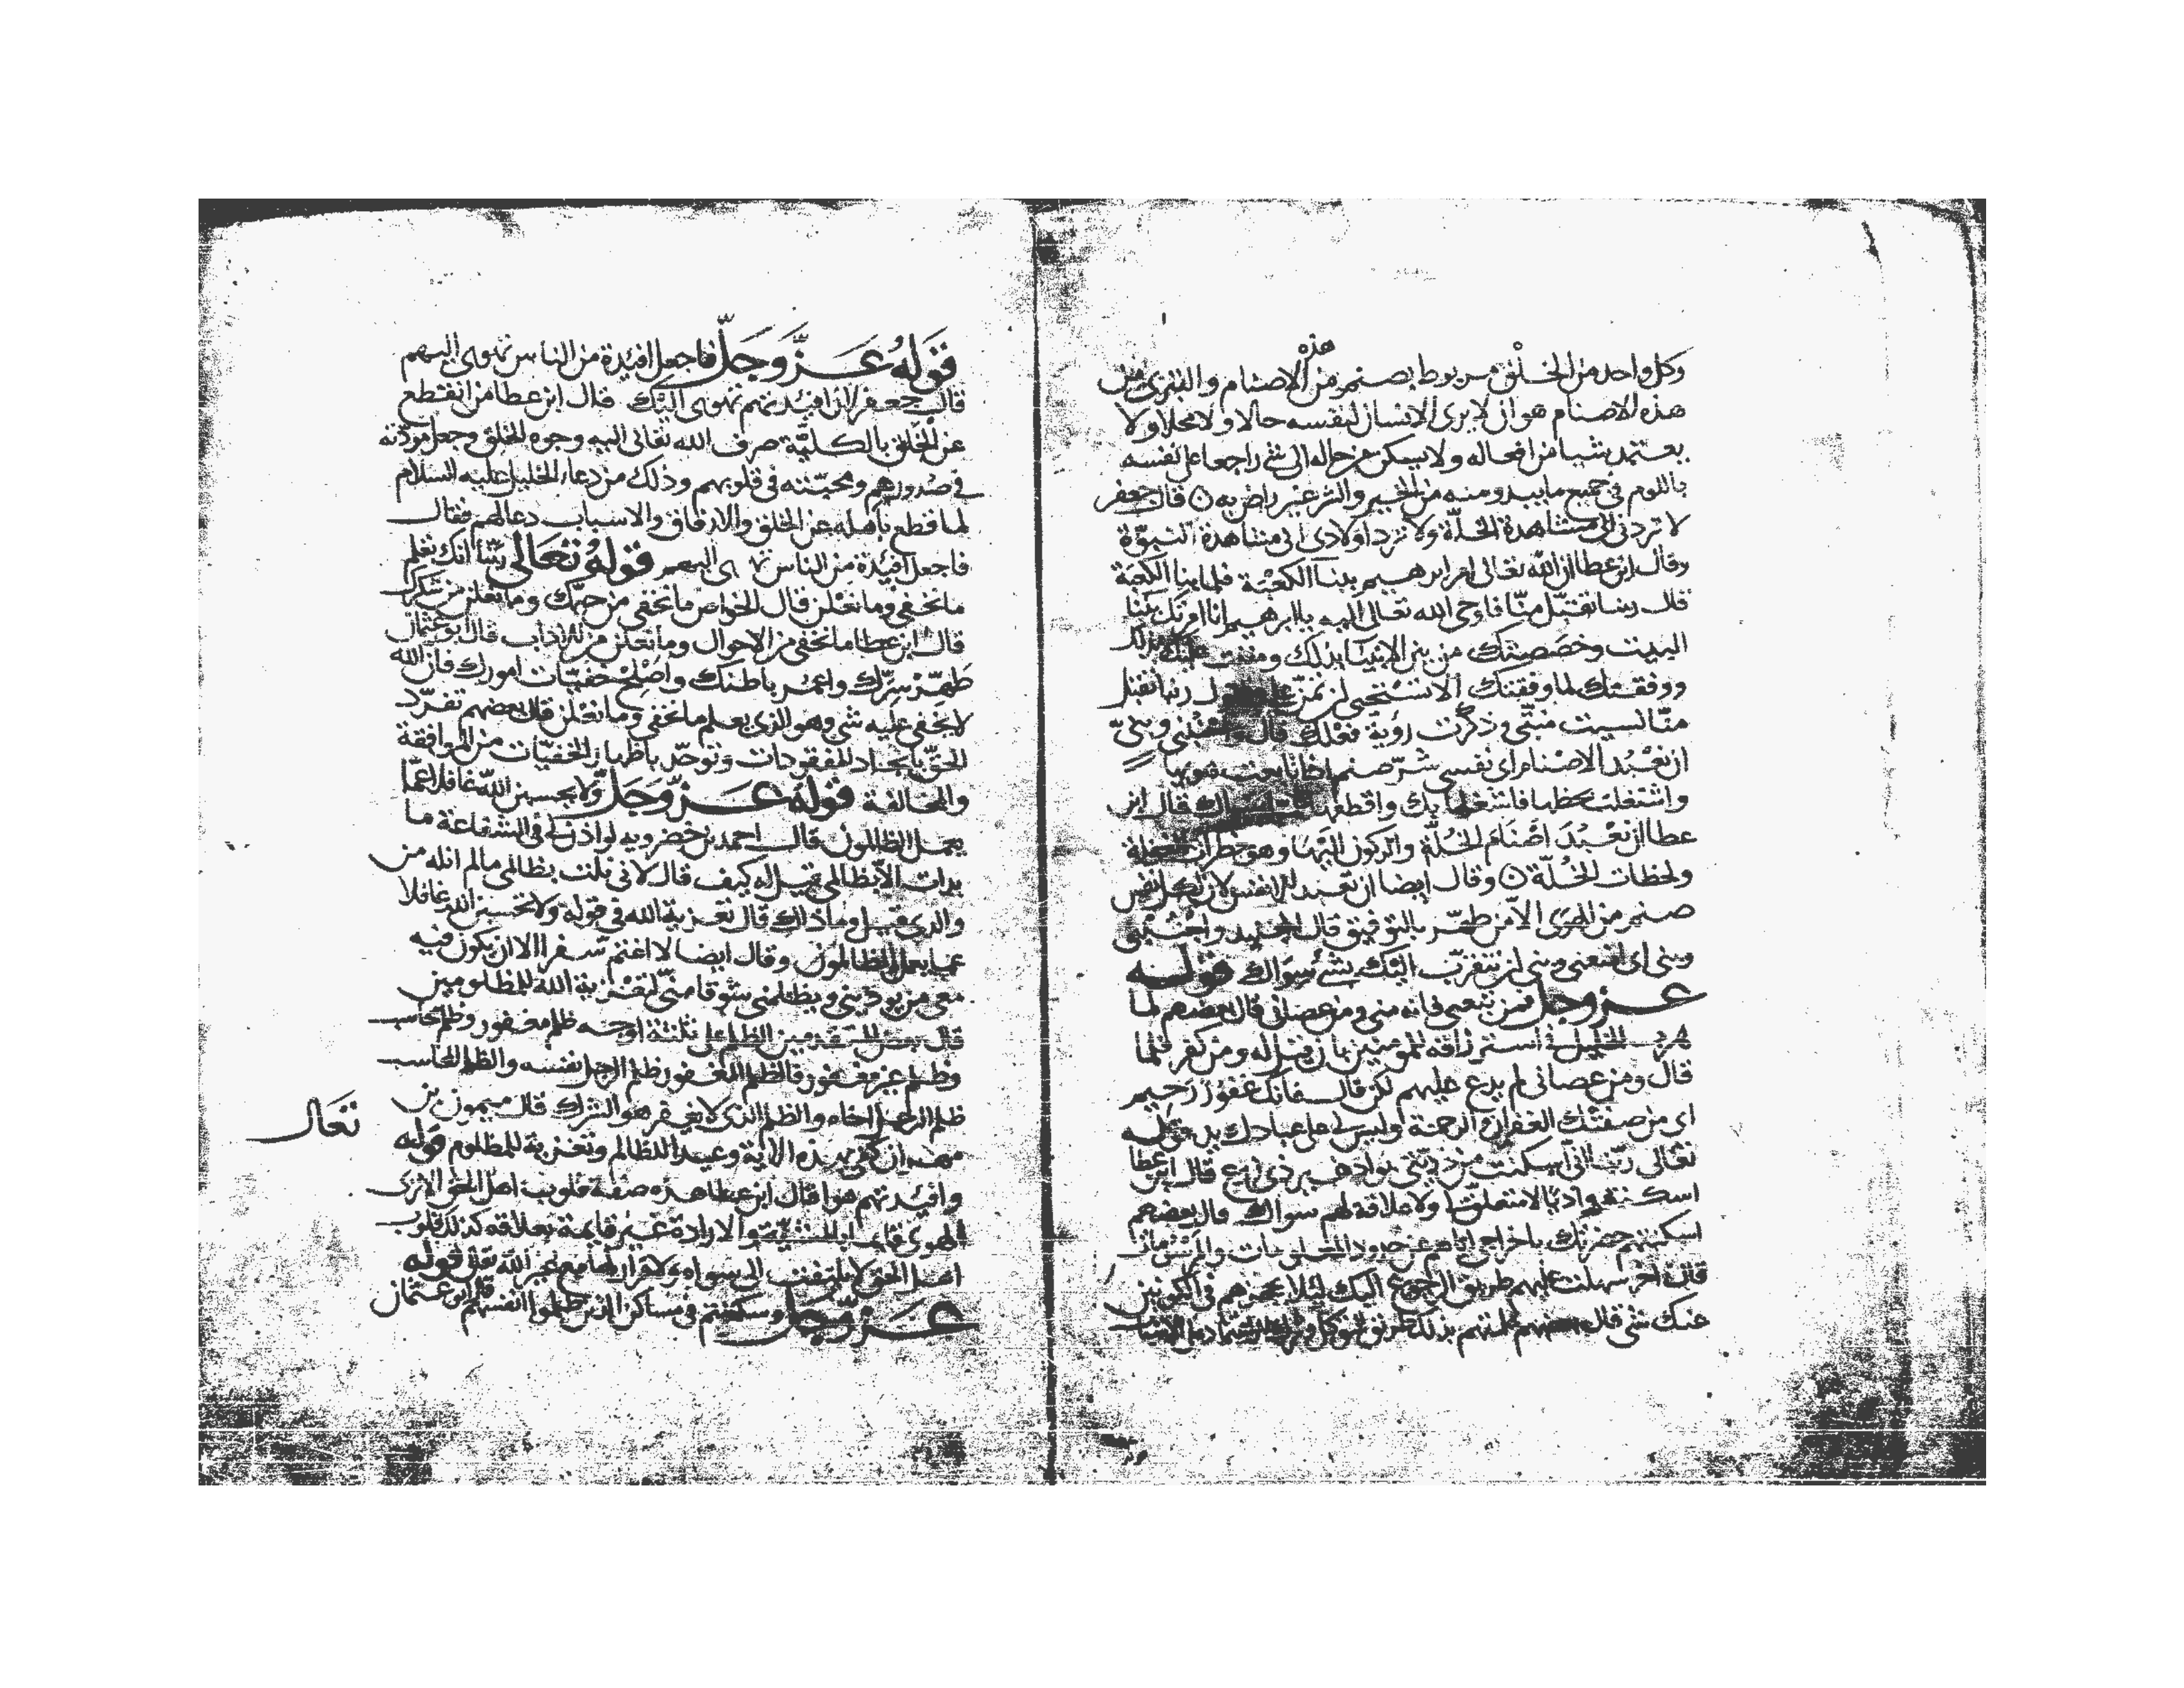 وكل واحد من الخلق مربوط بصنم من هذه الاصنام والتبري من
هذه الاصنام هو ان لا يرى الانسان لنفسه حالا ولا محلا ولا
يعتمد شيا من افعاله ولا يسكن من حاله الى شي راجعا على نفسه
باللوم في جميع ما يبدو منه من الخير والشر غير راض به ٥ قال جعفر
لا تردني الى مشاهدة الخلة ولا ترد اولادي الى مشاهدة النبوة
وقال ابن عطا ان الله تعالى امر ابرهيم ببنا الكعبة فلما بنا الكعبة
قال ربنا تقبل منا فاوحى الله تعالى اليه يا ابرهيم انا امرتك ببنا
البيت وخصصتك من بين الانبيا بذلك ومننت عليك بذلك
ووفقتك لما وفقتك الا تستحيي ان تمن علي وتقول ربنا تقبل
منا نسيت منتي وذكرت رؤية فعلك قال واجنبني وبني
ان نعبد الاصنام اي نفسي شر صنم اذا تابعت هويها
واشتغلت بحظها فاشغلها بك واقطعها عن سواك قال ابن
عطا ان نعبد اصنام الخلة والركون اليها وهو خطرات الغفلة
ولحظات الخلة ٥ وقال ايضا ان نعبد الانفس لان لكل نفس
صنم من الهوى الا من طهر بالتوفيق قال الجنيد واجنبني
وبني اي امنعني وبني ان نتقرب اليك بشي سواك قوله
عز وجل فمن تبعني فانه مني ومن عصاني قال بعضهم لما
الخليل استرزاقه للمومنين بان قيل له ومن كفر فلما
قال ومن عصاني لم يدع عليهم لكن قال فانك غفور رحيم
اي من صفتك الغفران الرحمة وليس لي على عبادك يد قوله
تعالى ربنا اني اسكنت من ذريتي بواد غير ذي زرع قال ابن عطا
اسكنته واديا لا متعلق ولا علاقة لهم سواك قال بعضهم
اسكنتهم حضرتك باخراجي اياهم عن حدود المعلومات والمرسومات
قال اخر سهلت عليهم طريق الرجوع اليك ليلا يحجزهم في الكونين
عنك شي قال بعضهم علمتهم بذلك طريق التوكل وترك الاعتماد على الاسباب
قوله عز وجل فاجعل افئدة من الناس تهوي اليهم
قال جعفر لان افيدتهم تهوي اليك قال ابن عطا من انقطع
عن الخلق بالكلية صرف الله تعالى اليه وجوه الخلق وجعل مودته
في صدورهم ومحبته في قلوبهم وذلك من دعاء الخليل عليه السلام
لما قطع باهله عن الخلق والارفاق والاسباب دعا لهم فقال
فاجعل افئدة من الناس تهوي اليهم قوله تعالى ربنا انك تعلم
ما نخفي وما نعلن قال الخواص ما نخفي من حبك وما نعلن من شكرك
قال ابن عطا ما نخفي من الاحوال وما نعلن من الاداب قال ابو عثمان
طهر سرك واعمر باطنك واصلح خفيات امورك فان الله
لا يخفى عليه شي وهو الذي يعلم ما نخفي وما نعلن قال بعضهم تفرد
الحق بايجاد المفقودات وتوحد باظهار الخفيات من الموافقة
والمخالفة قوله عز وجل ولا تحسبن الله غافلا عما
يعمل الظالمون قال احمد بن خضرويه لو اذن لي في الشفاعة ما
بدات الا بظالمي قيل له كيف قال لاني نلت بظالمي ما لم انله من
والدي قيل وما ذاك قال تعزية الله في قوله ولا تحسبن الله غافلا
عما يعمل الظالمون وقال ايضا لا اغتنم سفرا الا ان يكون فيه
معي من يوذيني ويظلمني شوقا مني لتعزية الله للمظلومين
قال بعض المتقدمين الظلم على ثلثة اوجه ظلم مغفور وظلم محاسب
وظلم غير مغفور فالظلم المغفور ظلم الرجل نفسه والظلم المحاسب
ظلم الرجل اخاه والظلم الذي لا يغفر هو الشرك قال ميمون بن
مهران كفى بهذه الاية وعيدا للظالم وتعزية للمظلوم قوله
تعالى
وافيدتهم هوا قال ابن عطا هذه صفة قلوب اهل الحق
الهوى قايما بالمشيئة والارادة غير قايمة بعلاقة كذلك قلوب
اهل الحق لا تلتفت الى سواه ولا قرار لها مع غير الله تعالى قوله
عز وجل وسكنتم في مساكن الذين ظلموا انفسهم قال ابو عثمان